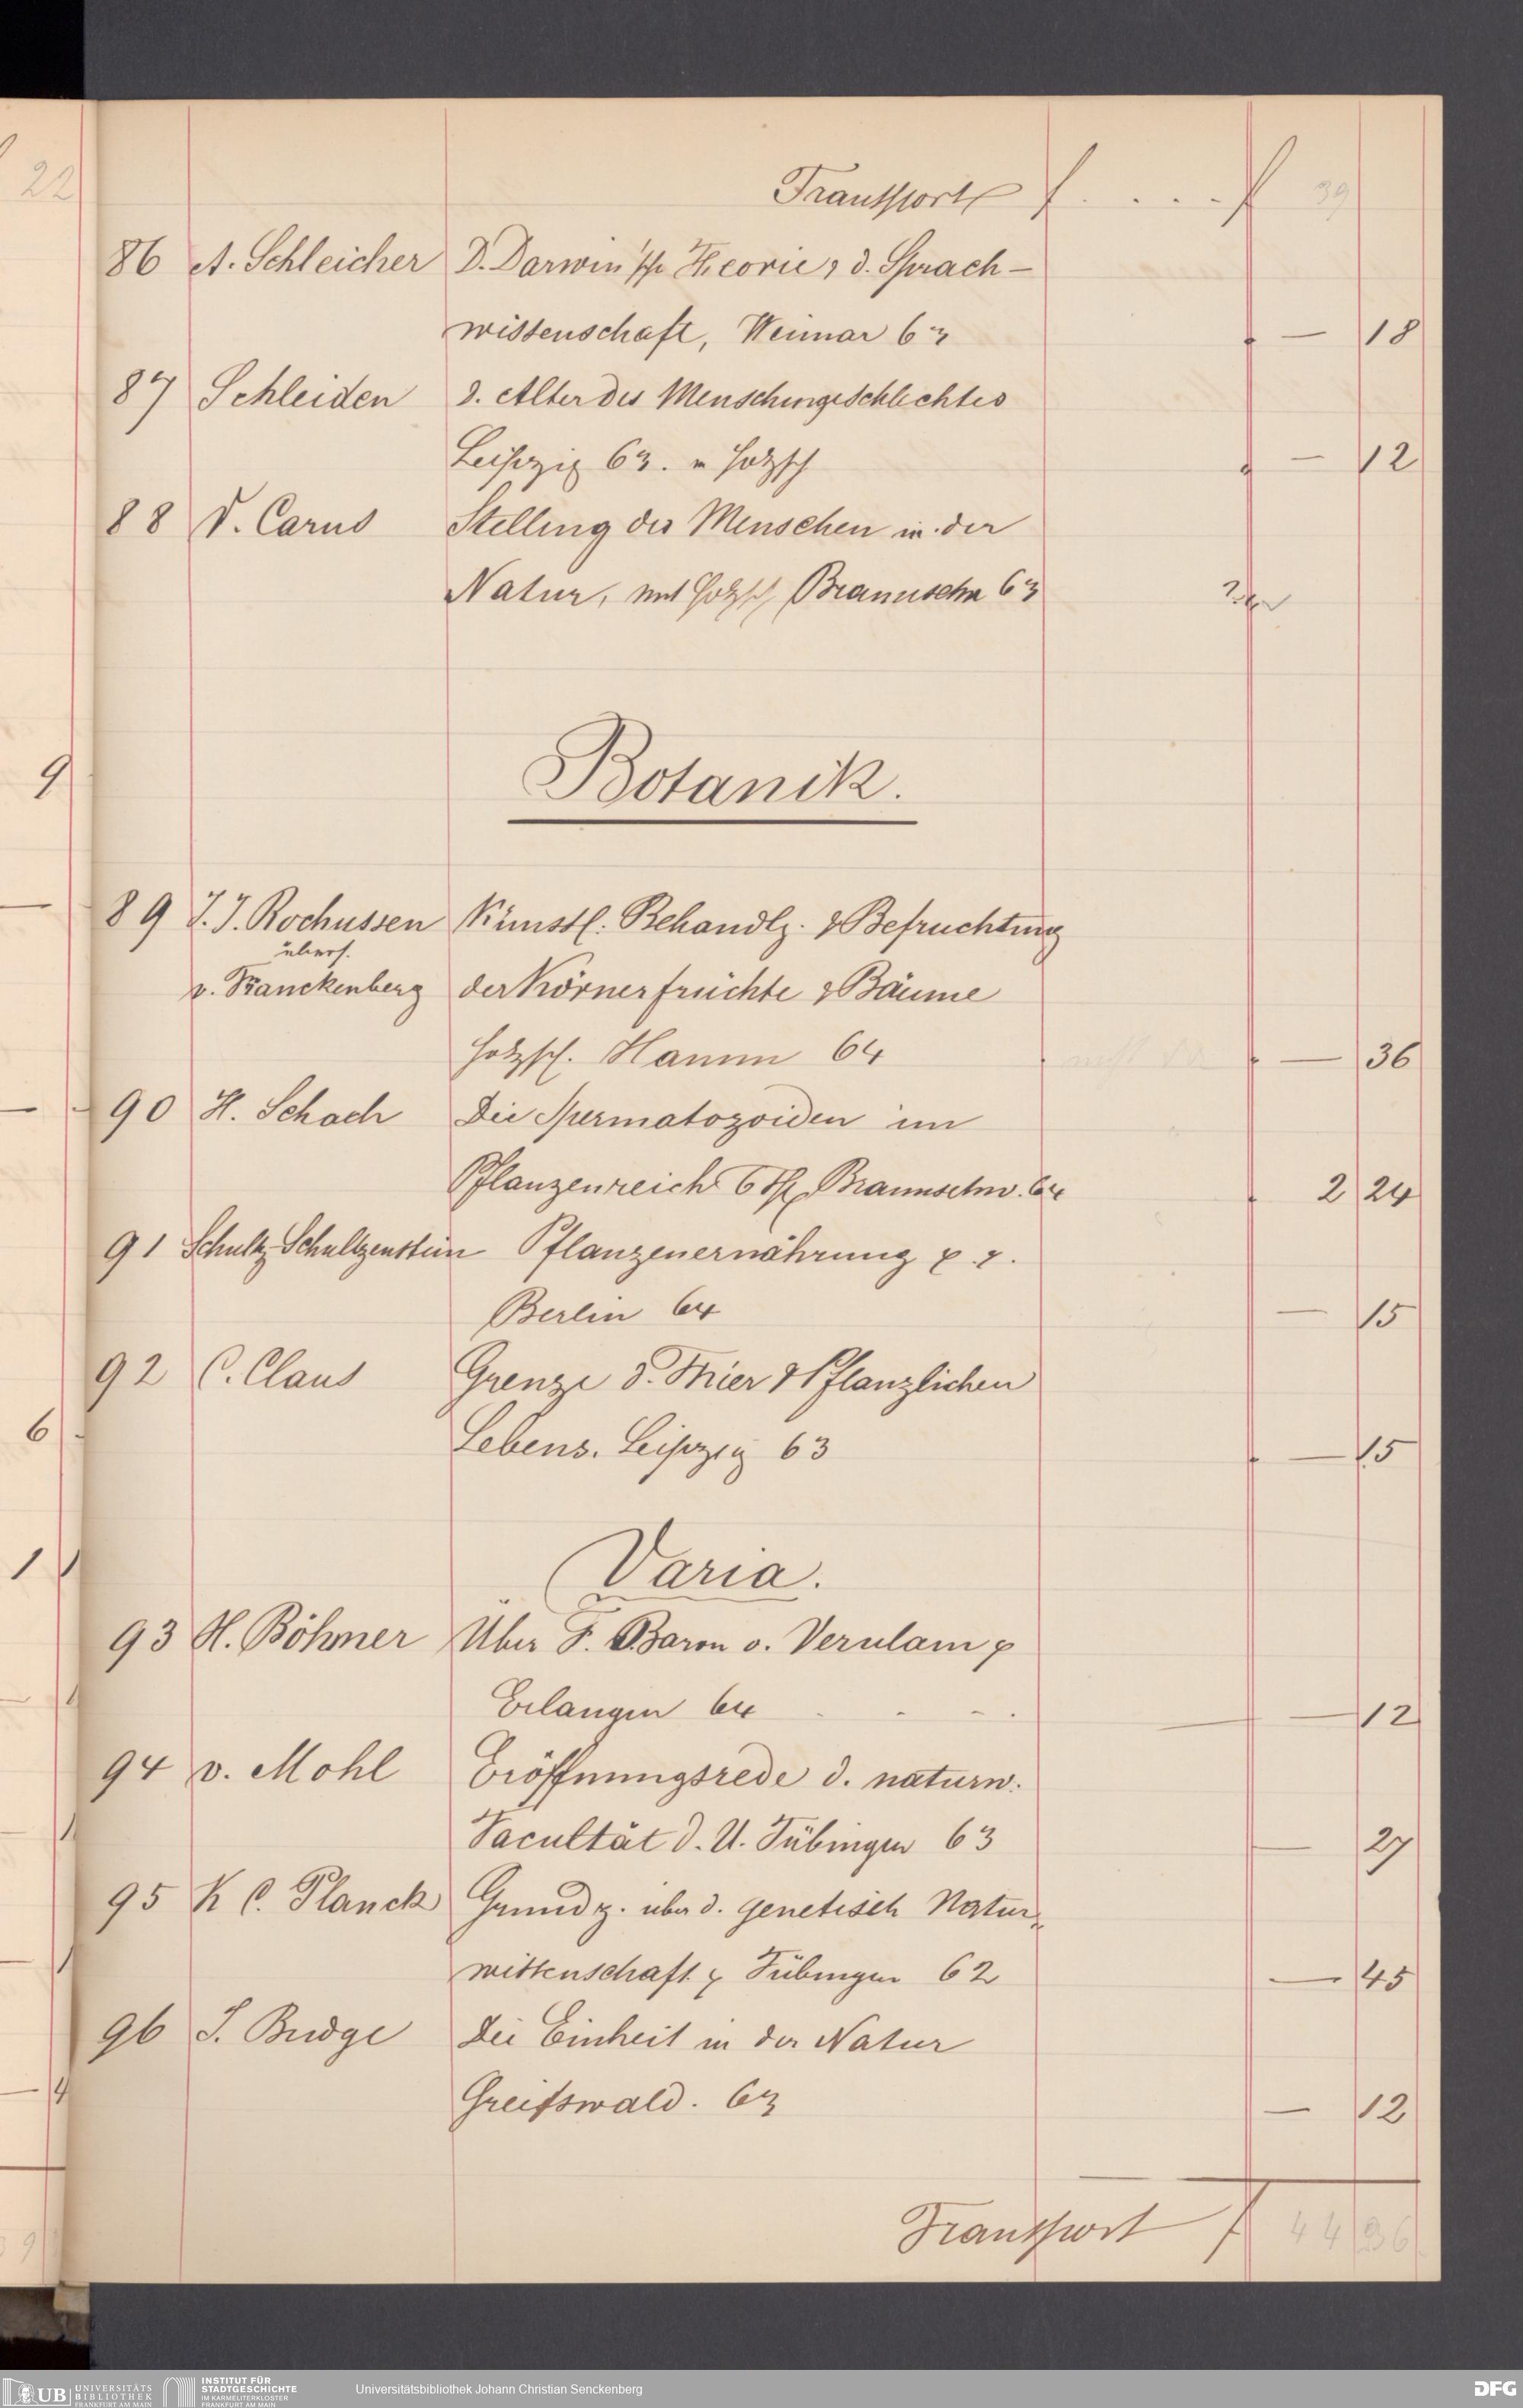 22
Transport f . . . . f 39
86 A. Schleicher D. Darwin'sche Theorie & d. Sprach-
wissenschaft, Weimar 63 — 18
87 Schleiden D. Alter des Menschengeschlechtes
Leipzig 63. m Holzsch — 12
88 V. Carus Stellung des Menschen in der
Natur, mit Holzsch Braunschw 63
9
Botanik.
89 J. J. Rochussen Künstl. Behandlg. & Befruchtung
übers.
v. Franckenberg der Körnerfrüchte & Bäume
Holzsch. Hamm 64 — 36
90 H. Schach Die Spermatozoiden im
Pflanzenreich 6 Tfl. Braunschw. 64 2 24
91 Schultz Schultzenstein Pflanzenernährung
Berlin 64 — 15
92 C. Claus Grenze d. Thier & Pflanzlichen
6
Lebens. Leipzig 63 — 15
1
Varia.
93 H. Böhmer Über F. B. Baron v. Verulam
Erlangen 64 — 12
94 v. Mohl Eröffnungsrede d. naturw.
Facultät d. U. Tübingen 63 — 27
95 K C. Planck Grundz. über d. genetisch Natur-
wissenschaft Tübingen 62 — 45
96 J. Budge Die Einheit in der Natur
Greifswald. 63 — 12
Transport f 44 36
UB UNIVERSITÄTS BIBLIOTHEK FRANKFURT AM MAIN
INSTITUT FÜR STADTGESCHICHTE IM KARMELITERKLOSTER FRANKFURT AM MAIN
Universitätsbibliothek Johann Christian Senckenberg
DFG